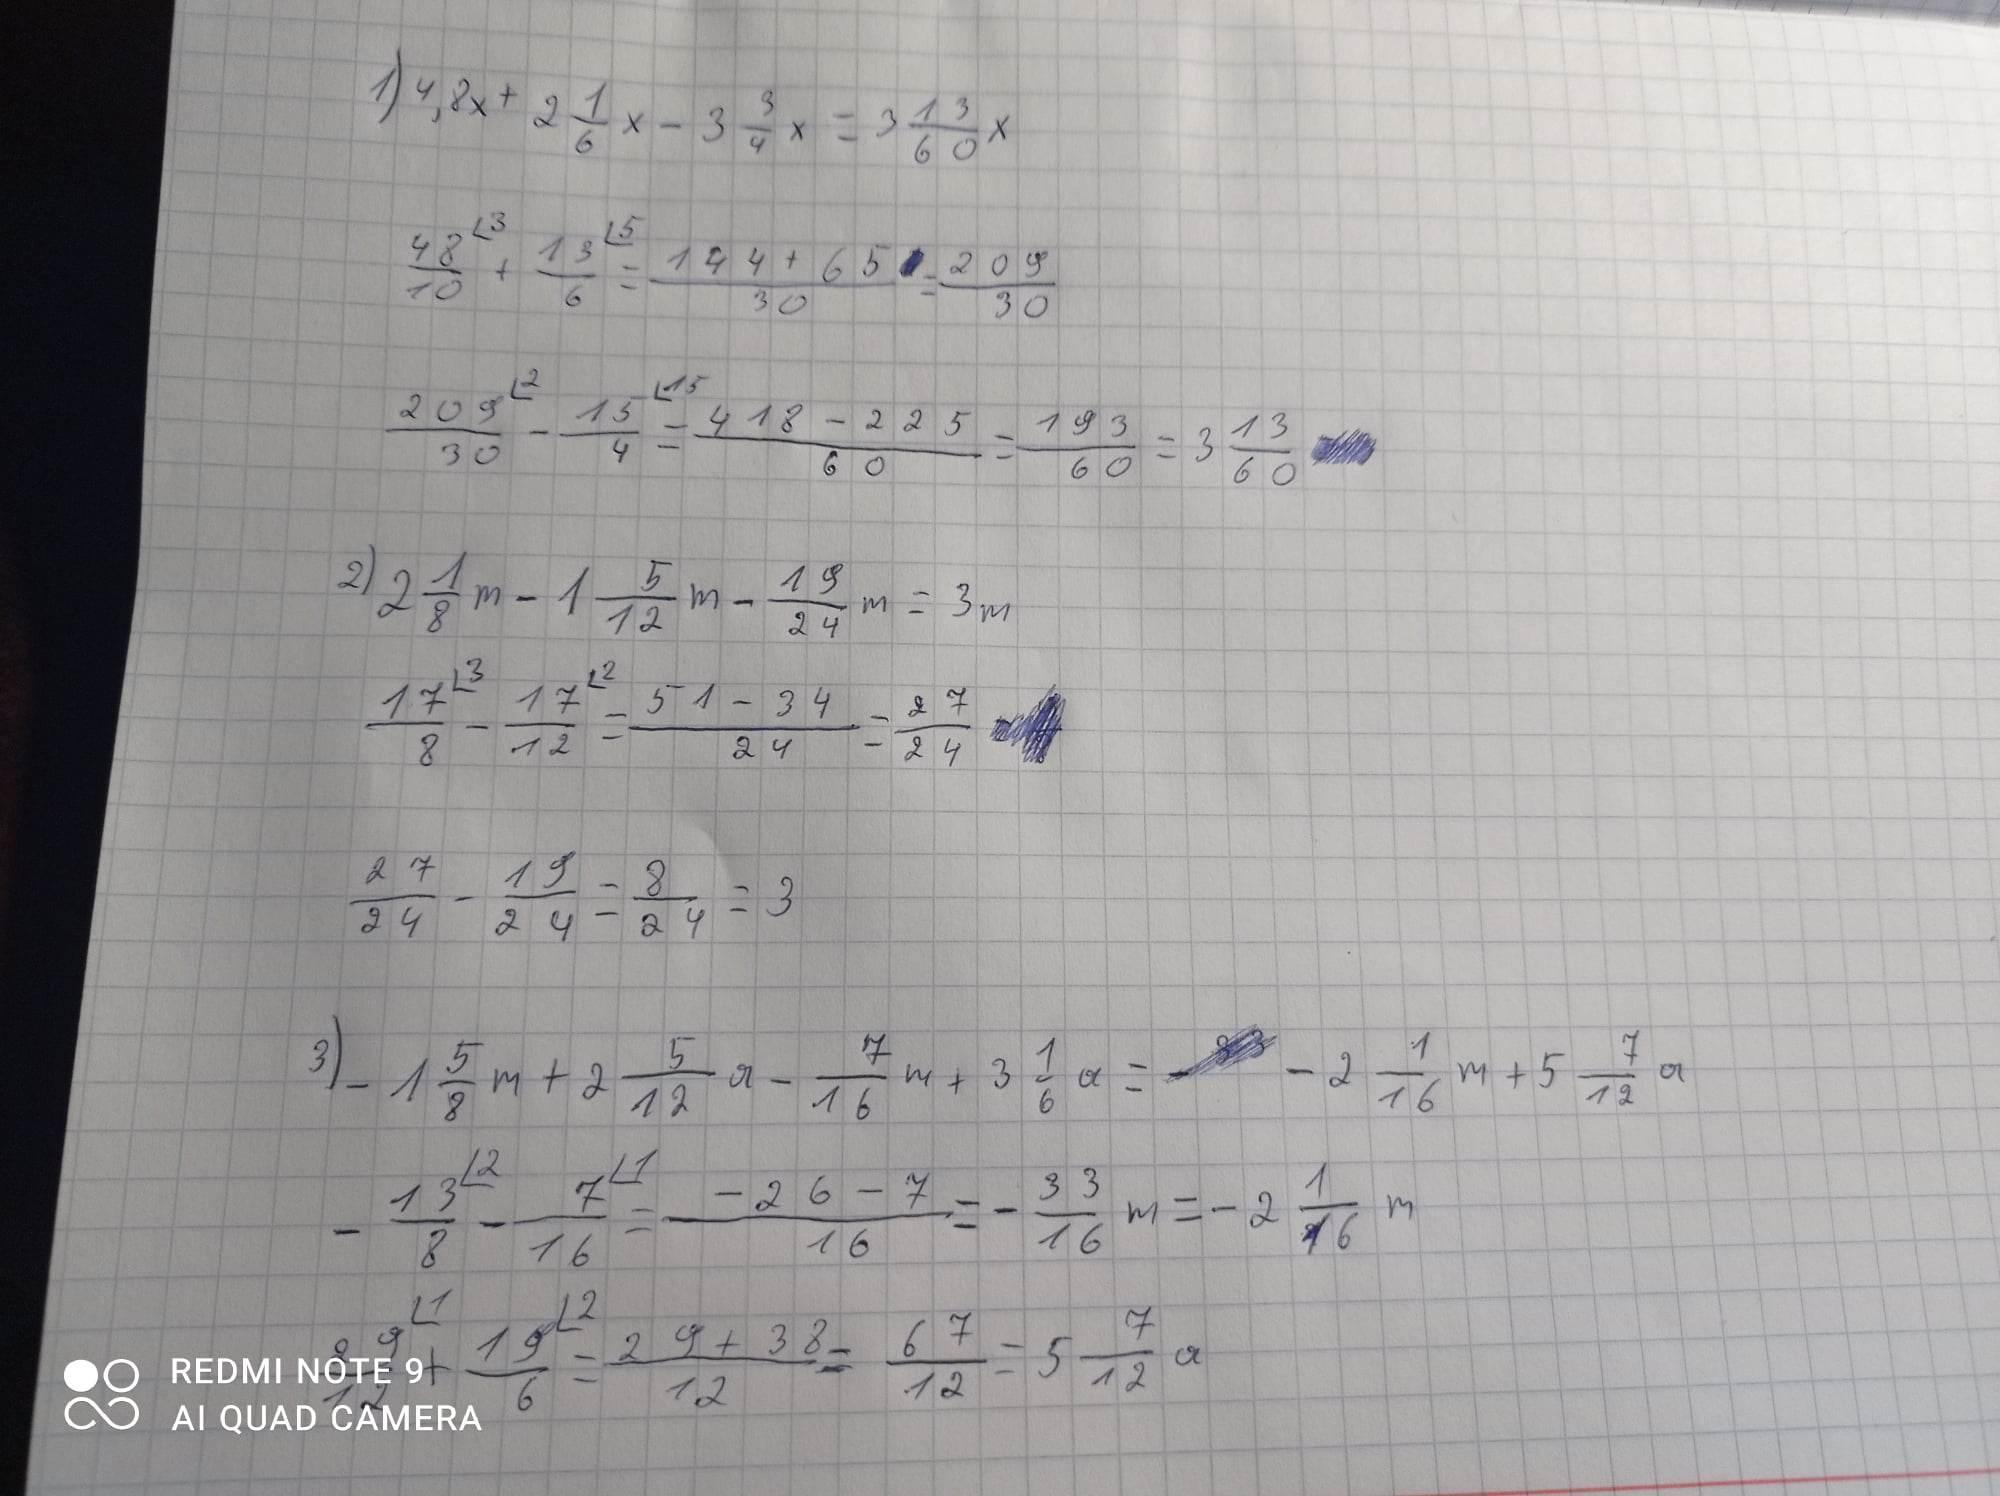 1) 4,8x + 2 1/6 x - 3 3/4 x = 3 13/60 x
48/10 ⌊3 + 13/6 ⌊5 = 144+65/30 = 209/30
209/30 ⌊2 - 15/4 ⌊15 = 418-225/60 = 193/60 = 3 13/60
2) 2 1/8 m - 1 5/12 m - 19/24 m = 3m
17/8 ⌊3 - 17/12 ⌊2 = 51-34/24 = 27/24
27/24 - 19/24 = 8/24 = 3
3) - 1 5/8 m + 2 5/12 a - 7/16 m + 3 1/6 a = - 2 1/16 m + 5 7/12 a
- 13/8 ⌊2 - 7/16 ⌊1 = -26-7/16 = - 33/16 m = - 2 1/16 m
9/12 ⌊1 + 19/6 ⌊2 = 29+38/12 = 67/12 = 5 7/12 a
REDMI NOTE 9
AI QUAD CAMERA